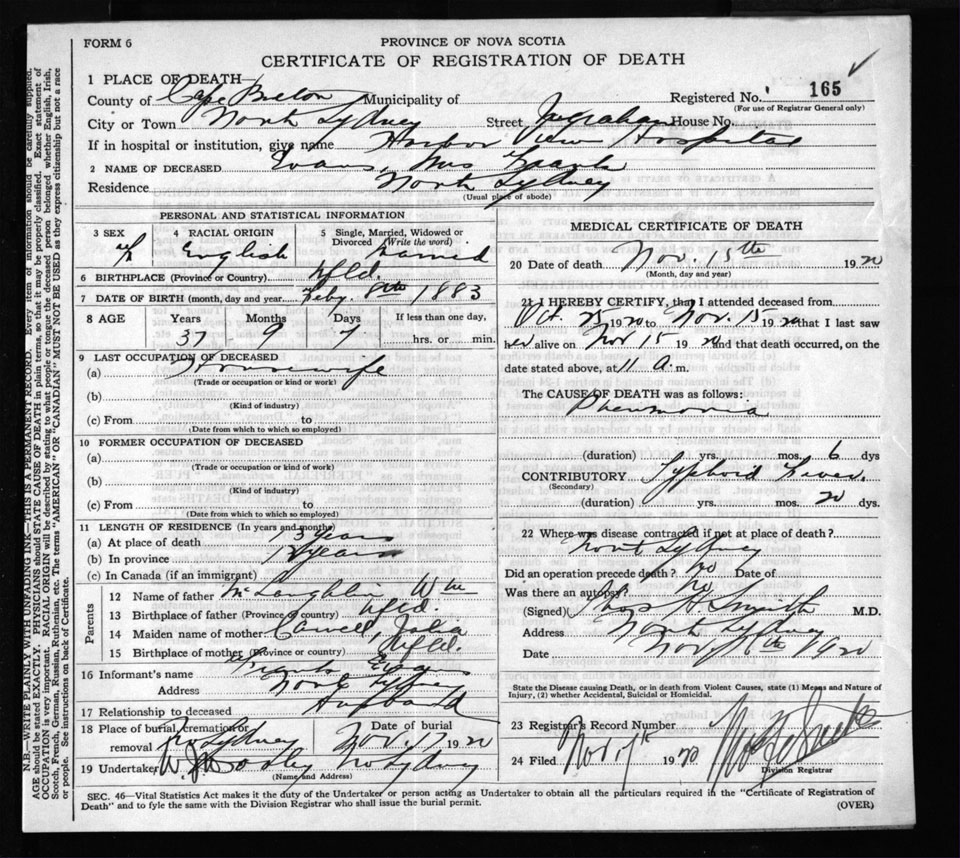 FORM 6
PROVINCE OF NOVA SCOTIA
CERTIFICATE OF REGISTRATION OF DEATH
1 PLACE OF DEATH—
County of Cape Breton Municipality of Registered No. 165
(For use of Registrar General only)
City or Town North Sydney Street Ingraham House No.
If in hospital or institution, give name Harbor View Hospital
2 NAME OF DECEASED Evans, Mrs Frank
Residence North Sydney
(Usual place of abode)
PERSONAL AND STATISTICAL INFORMATION
3 SEX 4 RACIAL ORIGIN 5 Single, Married, Widowed or Divorced (Write the word)
F English Married
6 BIRTHPLACE (Province or Country) Nfld.
7 DATE OF BIRTH (month, day and year) Feby. 8th 1883
8 AGE Years Months Days If less than one day,
37 9 7 hrs. or min.
9 LAST OCCUPATION OF DECEASED
(a) Housewife
(Trade or occupation or kind or work)
(b)
(Kind of industry)
(c) From to
(Date from which to which so employed)
10 FORMER OCCUPATION OF DECEASED
(a)
(Trade or occupation or kind or work)
(b)
(Kind of industry)
(c) From to
(Date from which to which so employed)
11 LENGTH OF RESIDENCE (In years and months)
(a) At place of death 13 years
(b) In province years
(c) In Canada (if an immigrant)
Parents
12 Name of father McLaughlin Wm
13 Birthplace of father (Province or country) Nfld.
14 Maiden name of mother Julia
15 Birthplace of mother (Province or country) Nfld.
16 Informant's name Frank Evans
Address North Sydney
17 Relationship to deceased Husband
18 Place of burial, cremation or removal No Sydney Date of burial Nov. 17 1920
19 Undertaker No Sydney
(Name and Address)
MEDICAL CERTIFICATE OF DEATH
20 Date of death Nov. 15th 1920
(Month, day and year)
21 I HEREBY CERTIFY, that I attended deceased from
Oct. 25 1920 to Nov. 15 1920 that I last saw
her alive on Nov 15 1920 and that death occurred, on the
date stated above, at 11 A. m.
The CAUSE OF DEATH was as follows:
Pneumonia
(duration) yrs. mos. 6 dys
CONTRIBUTORY Typhoid Fever.
(Secondary)
(duration) yrs. mos. 20 dys.
22 Where was disease contracted if not at place of death?
North Sydney
Did an operation precede death? no Date of
Was there an autopsy? no
(Signed) H. Smith M.D.
Address North Sydney
Date Nov 16th 1920
State the Disease causing Death, or in death from Violent Causes, state (1) Means and Nature of Injury, (2) whether Accidental, Suicidal or Homicidal.
23 Registrar's Record Number
24 Filed Nov 17th 1920
Division Registrar
SEC. 46—Vital Statistics Act makes it the duty of the Undertaker or person acting as Undertaker to obtain all the particulars required in the "Certificate of Registration of
Death" and to fyle the same with the Division Registrar who shall issue the burial permit. (OVER)
N.B.—WRITE PLAINLY WITH UNFADING INK—THIS IS A PERMANENT RECORD. Every item of information should be carefully supplied.
AGE should be stated EXACTLY. PHYSICIANS should STATE CAUSE OF DEATH in plain terms, so that it may be properly classified. Exact statement of
OCCUPATION is very important. RACIAL ORIGIN will be described by stating to what people or tongue the deceased person belonged whether English, Irish,
Scotch, French, German, Russian, Ruthenian, etc. The terms "AMERICAN" OR "CANADIAN" MUST NOT BE USED as they express citizenship but not a race
or people. See instructions on back of Certificate.